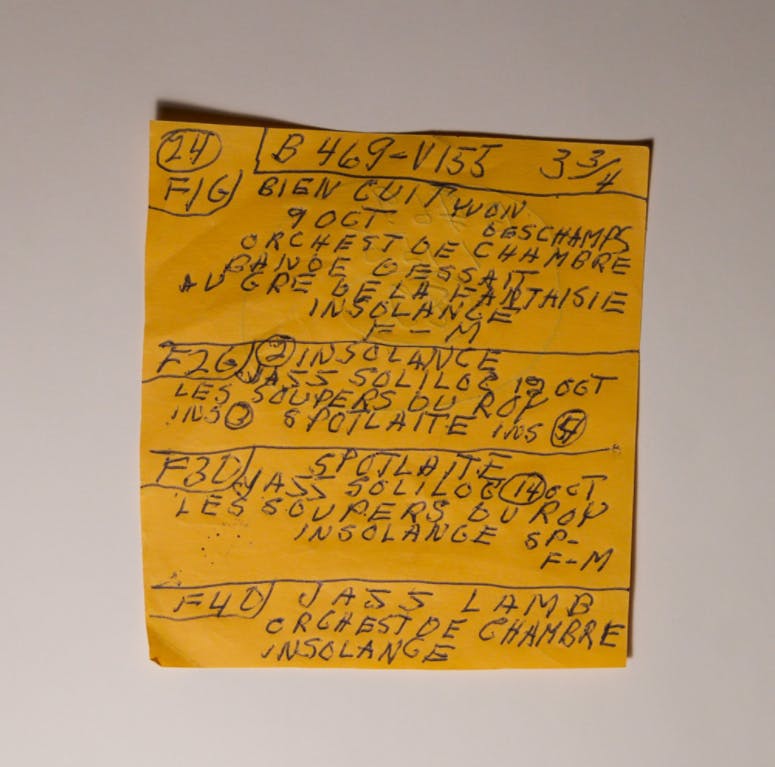 24 B 469-V155 3 3/4
F1G BIEN CUIT YVON
9 OCT DESCHAMPS
ORCHEST DE CHAMBRE
BANDE DESSAIT
AU GRE DE LA FANTAISIE
INSOLANGE
F-M
F2G 2 INSOLANCE
JASS SOLILOC 19 OCT
LES SOUPERS DU ROY
INS 3 SPOTLAITE INS
F3D SPOTLAITE
JASS SOLILOC 14 OCT
LES SOUPERS DU ROY
INSOLANGE SP-
F-M
F4D JASS LAMB
ORCHEST DE CHAMBRE
INSOLANGE